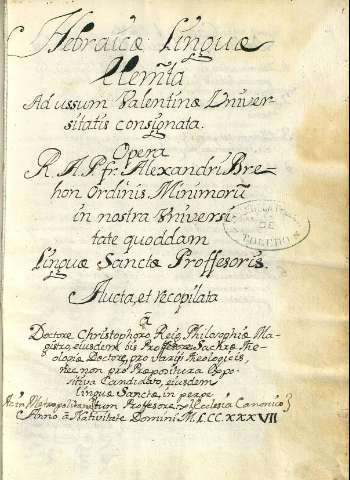 Hebraicæ Linguæ
Elem̃ta
Ad ussum Valentinæ Univer-
sitatis consignata.
Opera
R. A. P. fr. Alexandri Bre-
hon Ordinis Minimorũ
in nostra Universi
tate quoddam
Linguæ Sanctæ Proffesoris.
Aucta, et recopilata
à
Doctore Christophoro Reig Philosophiæ Ma-
gistro, ejusdem bis Proffesore Sacræ The-
ologiæ Doctore, pro Theologicis,
nec non pro Oppo-
sitiva Candidato, ejusdem
Linguæ Sanctæ in
Metropolitan Proffesore Ecclesia Canonico
Anno à Nativitate Domini M.LCC.XXXVII
DE
TOLEDO